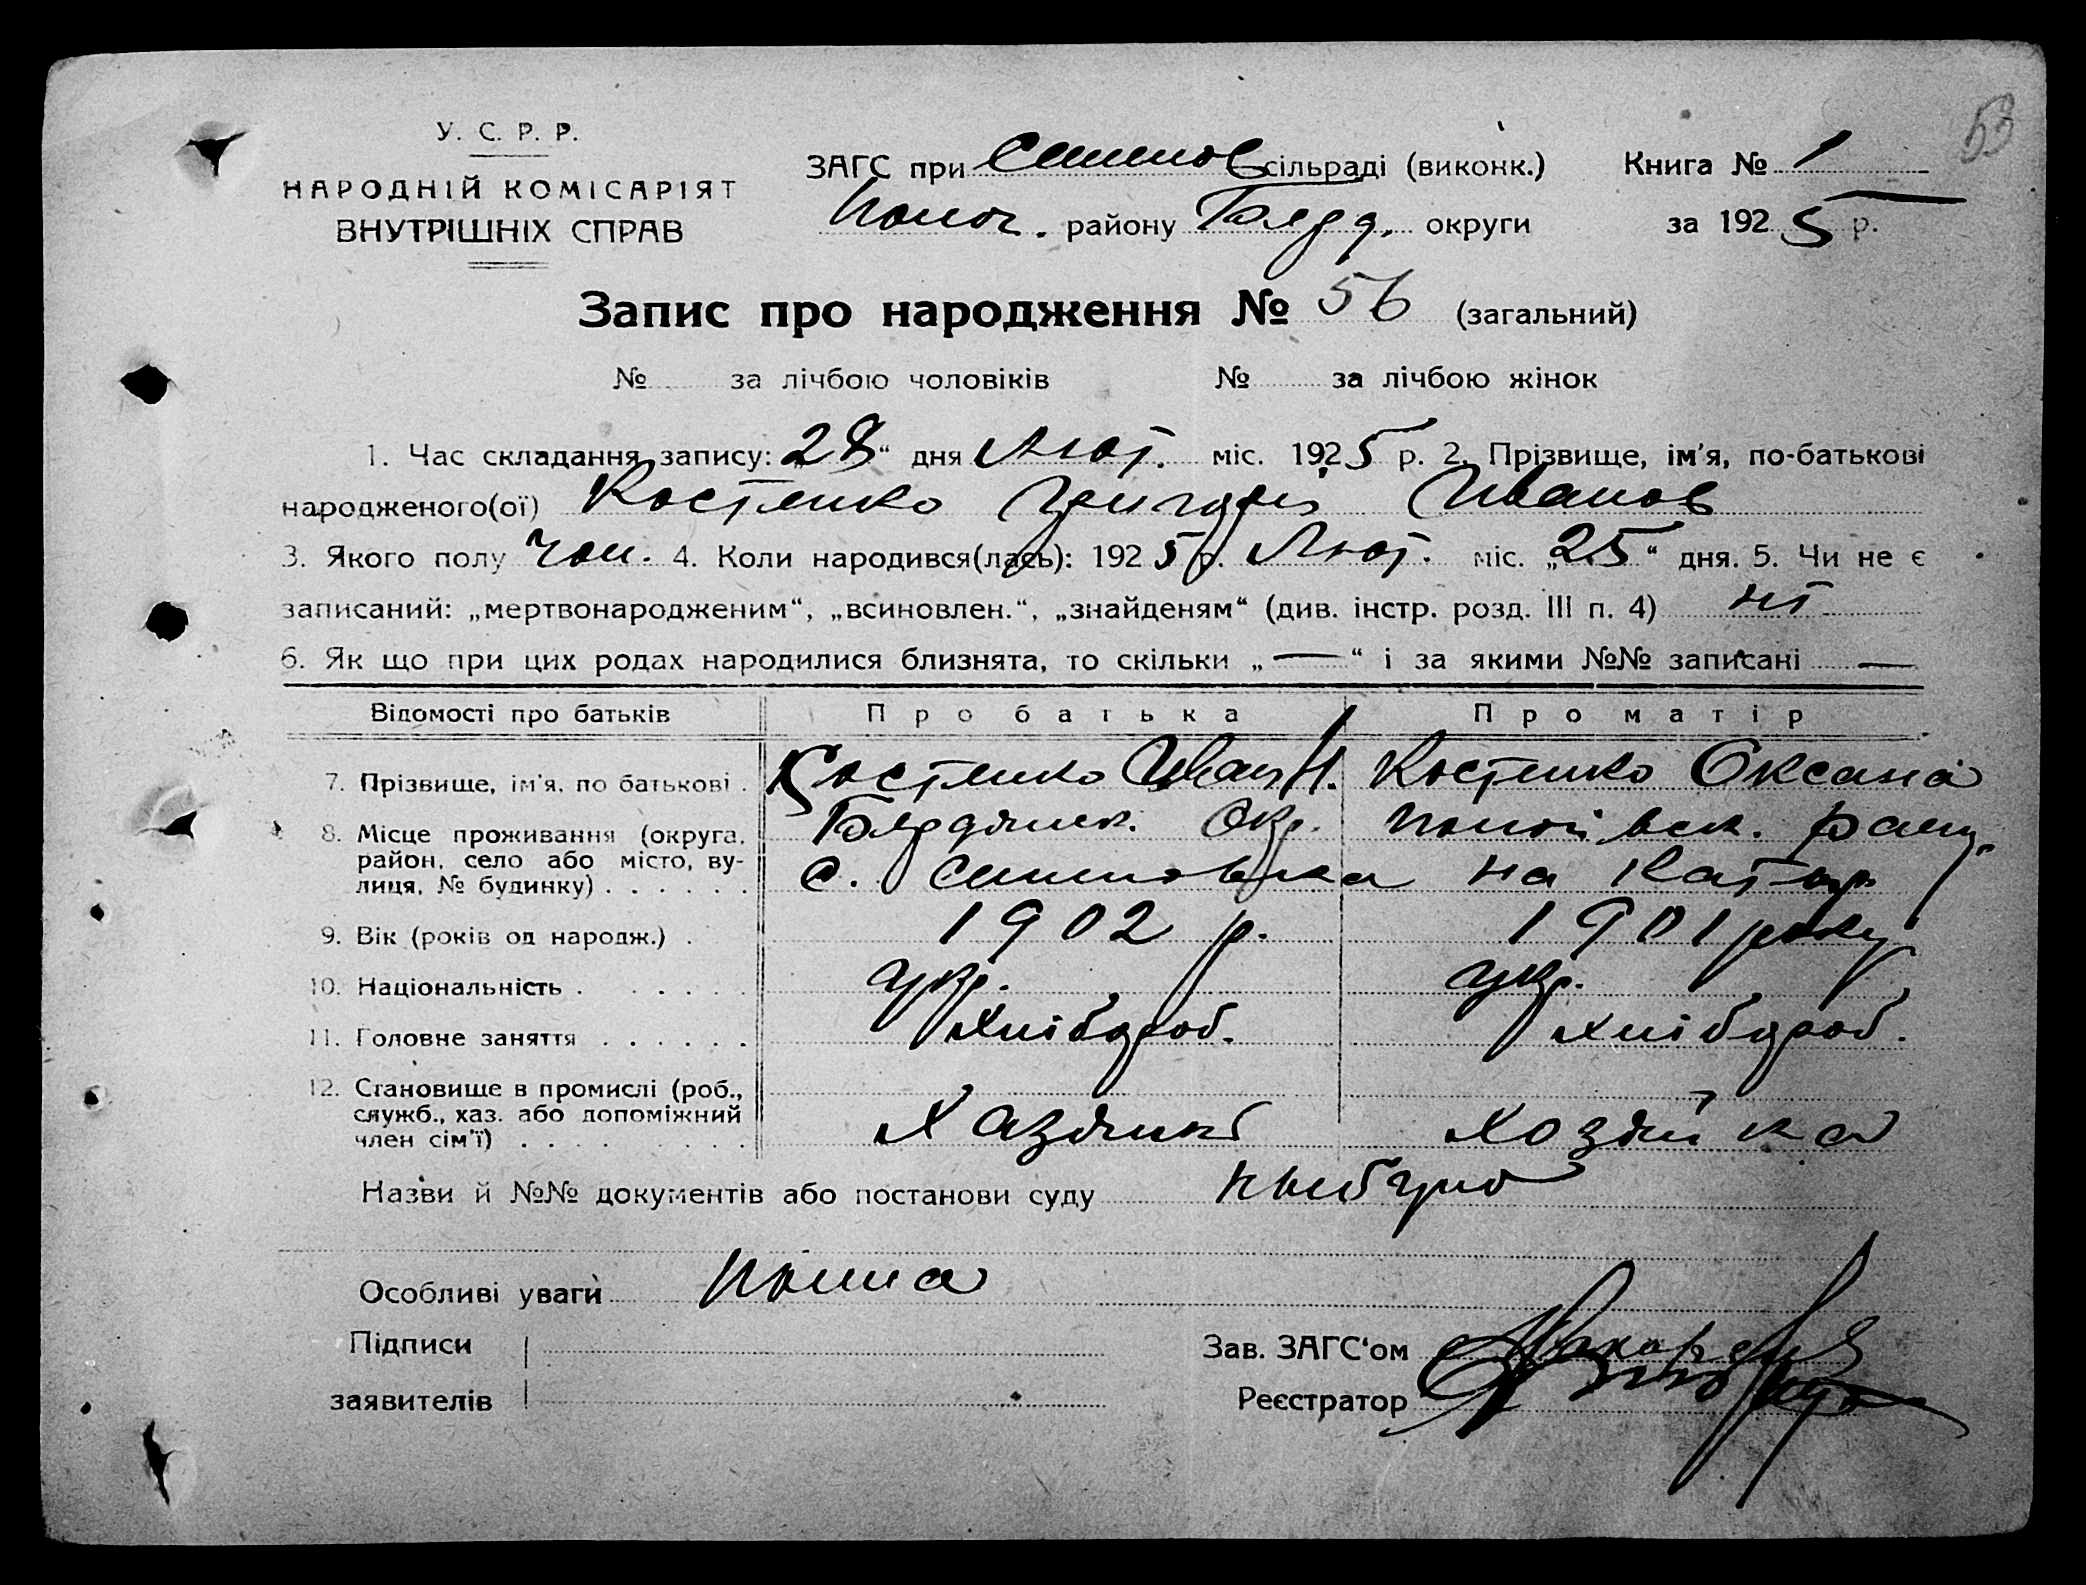 53
У. С. Р. Р.
НАРОДНІЙ КОМІСАРІЯТ
ВНУТРІШНІХ СПРАВ
ЗАГС при сільраді (виконк.)
району округи
Книга № 1
за 1925 р.
Запис про народження № 56 (загальний)
№ за лічбою чоловіків № за лічбою жінок
1. Час складання запису: „28“ дня Лют. міс. 1925 р. 2. Прізвище, ім'я, по-батькові
народженого(ої) Костенко Григорій Иванов
3. Якого полу чол. 4. Коли народився(лась): 1925 р. Лют. міс. „25“ дня. 5. Чи не є
записаний: „мертвонародженим“, „всиновлен.“, „знайденям“ (див. інстр. розд. III п. 4) ні
6. Як що при цих родах народилися близнята, то скільки „—“ і за якими №№ записані —
Відомості про батьків Про батька Про матір
7. Прізвище, ім'я, по батькові . Костенко Иван Н. Костенко Оксана
8. Місце проживання (округа, Окр.
район, село або місто, ву- с. на
лиця, № будинку) . . . . . .
9. Вік (років од народж.) . 1902 р. 1901 року
10. Національність . . . . . . укр. укр.
11. Головне заняття . . . . . . Хлібороб. хлібороб.
12. Становище в промислі (роб.,
служб., хаз. або допоміжний Хазяин хозяйка
член сім'ї) . . . . . . .
Назви й №№ документів або постанови суду
Особливі уваги
Підписи
заявителів
Зав. ЗАГС'ом
Реєстратор